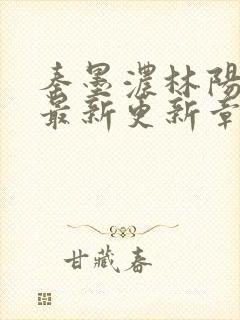 秦墨濃林陽
最新更新章
甘藏春